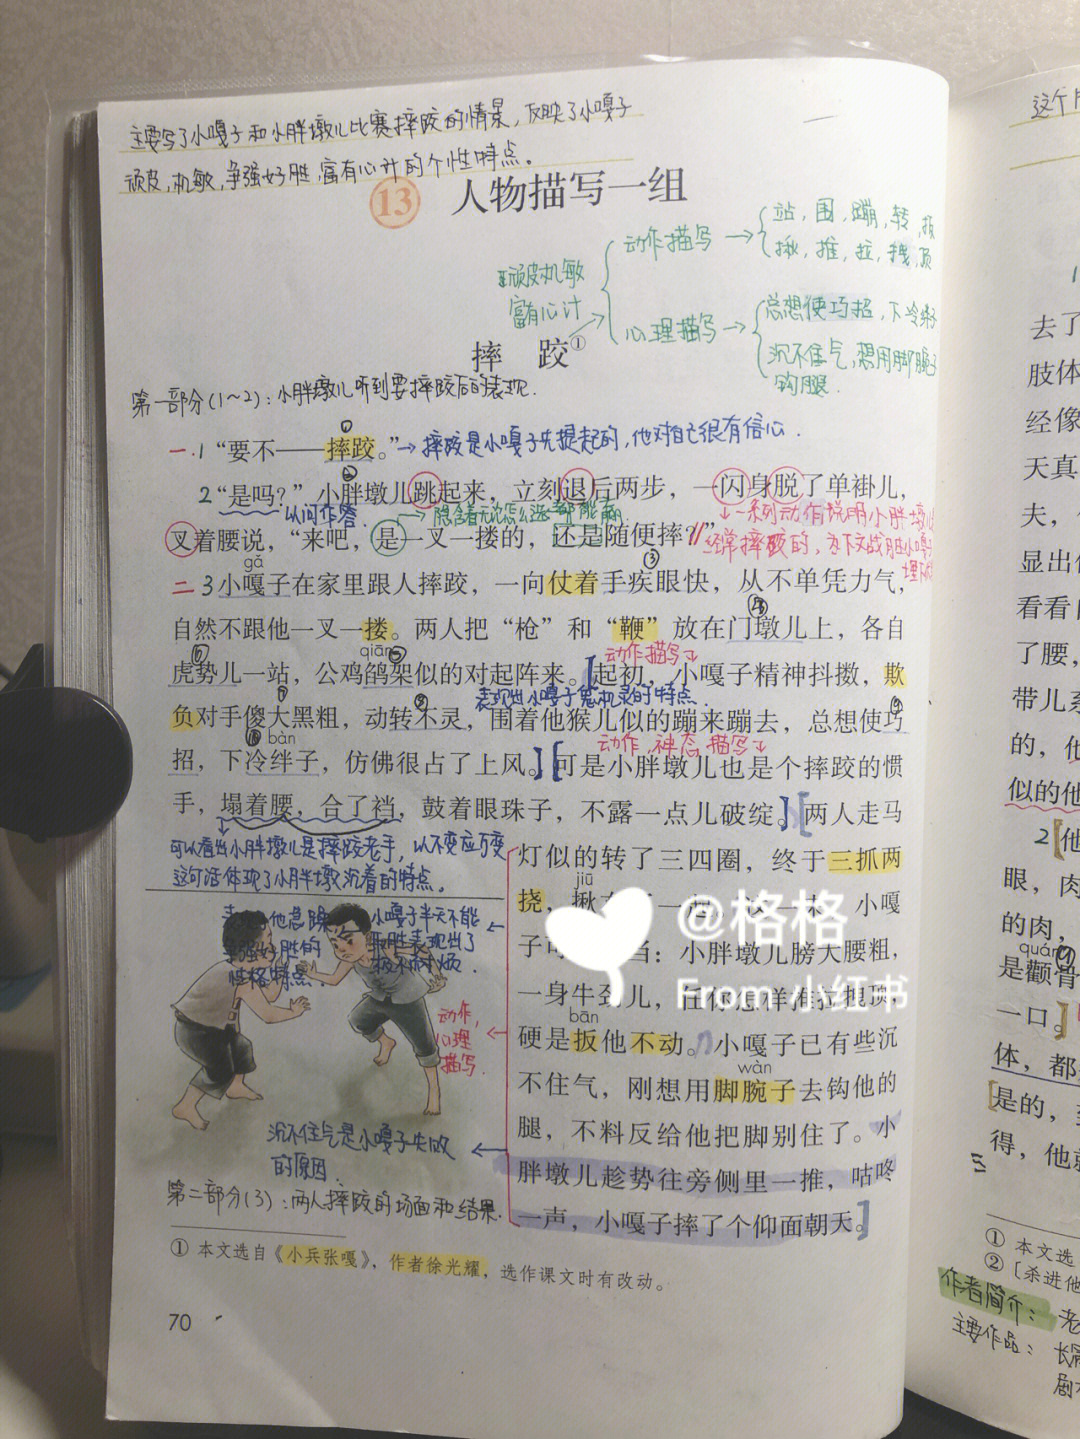 主要写了小嘎子和小胖墩儿比赛摔跤的情景,反映了小嘎子
顽皮,机敏,争强好胜,富有心计的个性特点。
13 人物描写一组
顽皮机敏
富有心计
动作描写→
站,围,蹦,转,扳
揪,推,拉,拽,顶
心理描写→
总想使巧招,下冷绊子
沉不住气,想用脚腕子
钩腿.
摔 跤①
第一部分(1~2):小胖墩儿听到要摔跤后的表现.
一.1“要不——摔跤。”→摔跤是小嘎子先提起的,他对自己很有信心.
2“是吗?”小胖墩儿跳起来,立刻退后两步,一闪身脱了单褂儿,
以问作答.
→隐含着无论怎么选都能赢
↓一系列动作说明小胖墩儿
叉着腰说,“来吧,是一叉一搂的,还是随便摔?”
经常摔跤的,为下文战胜小嘎子
gǎ
二3小嘎子在家里跟人摔跤,一向仗着手疾眼快,从不单凭力气,
自然不跟他一叉一搂。两人把“枪”和“鞭”放在门墩儿上,各自
qiān
动作描写↓
虎势儿一站,公鸡鹐架似的对起阵来。起初,小嘎子精神抖擞,欺
表现出小嘎子机灵的特点.
负对手傻大黑粗,动转不灵,围着他猴儿似的蹦来蹦去,总想使巧
bàn
动作,神态描写↓
招,下冷绊子,仿佛很占了上风。可是小胖墩儿也是个摔跤的惯
手,塌着腰,合了裆,鼓着眼珠子,不露一点儿破绽。两人走马
可以看出小胖墩儿是摔跤老手,以不变应万变
这句话体现了小胖墩沉着的特点。
灯似的转了三四圈,终于三抓两
jiū
挠,揪
一起。这一来,小嘎
子
当:小胖墩儿膀大腰粗,
一身牛劲儿,任你怎样推拉拽顶,
bān
硬是扳他不动。小嘎子已有些沉
wàn
不住气,刚想用脚腕子去钩他的
腿,不料反给他把脚别住了。小
胖墩儿趁势往旁侧里一推,咕咚
一声,小嘎子摔了个仰面朝天。
争强好胜的
性格特点.
小嘎子半天不能
取胜表现出了
动作,
心理
描写.
沉不住气是小嘎子失败
的原因.
第二部分(3):两人摔跤的场面和结果.
① 本文选自《小兵张嘎》,作者徐光耀,选作课文时有改动。
70
@格格
From 小红书
这个
去了
肢体
经像
天真
夫,
显出
看看
了腰,
带儿
的,他
似的他
2 他
眼,肉
的肉,
quán
是颧骨
一口。
体,都
是的,
得,他就
① 本文选
②〔杀进他
作者简介:老
主要作品:长篇
剧本